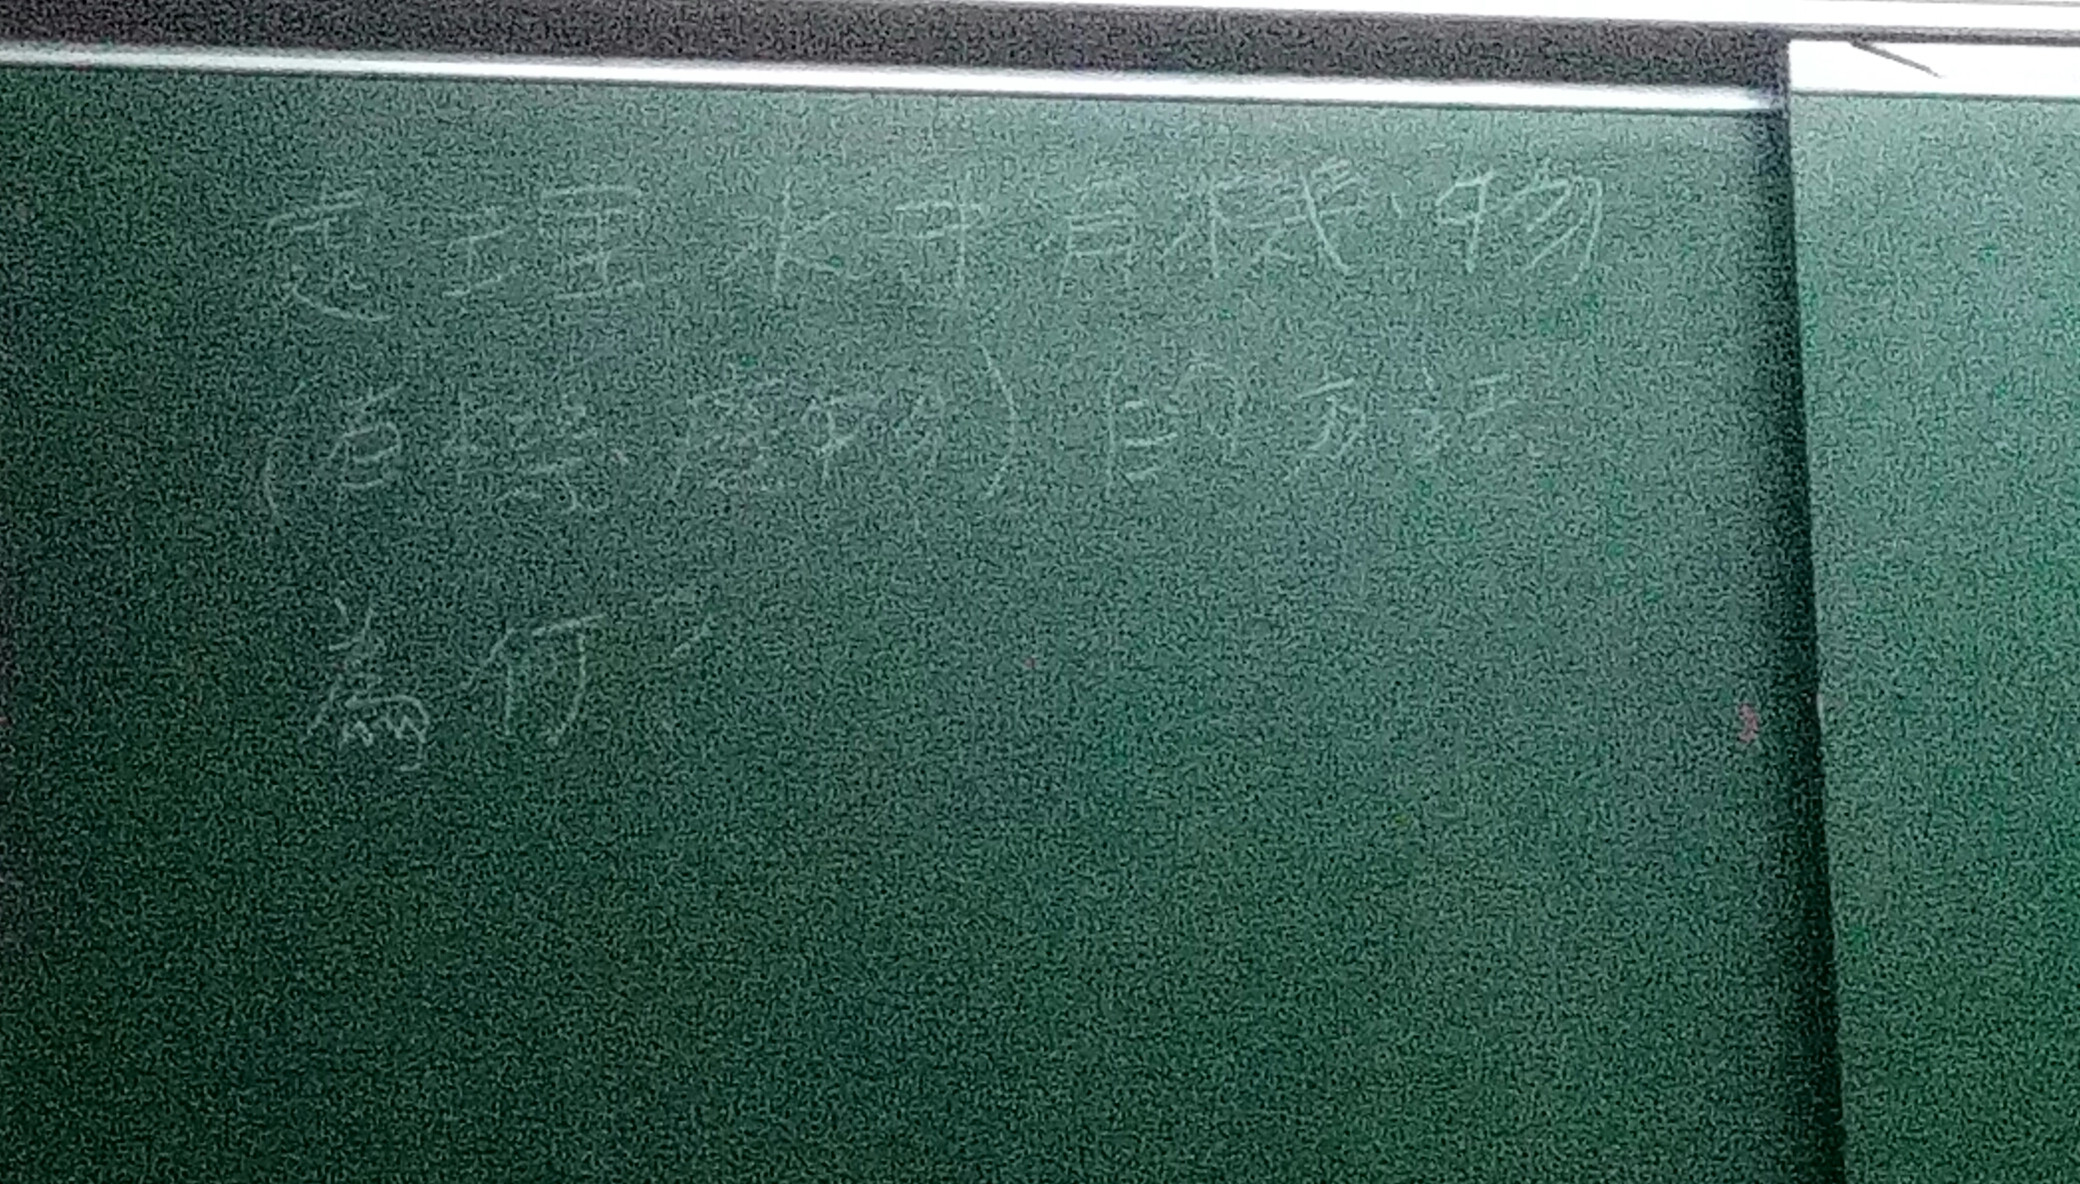 處理水中有機物
(有機廢物)的方法
為何?